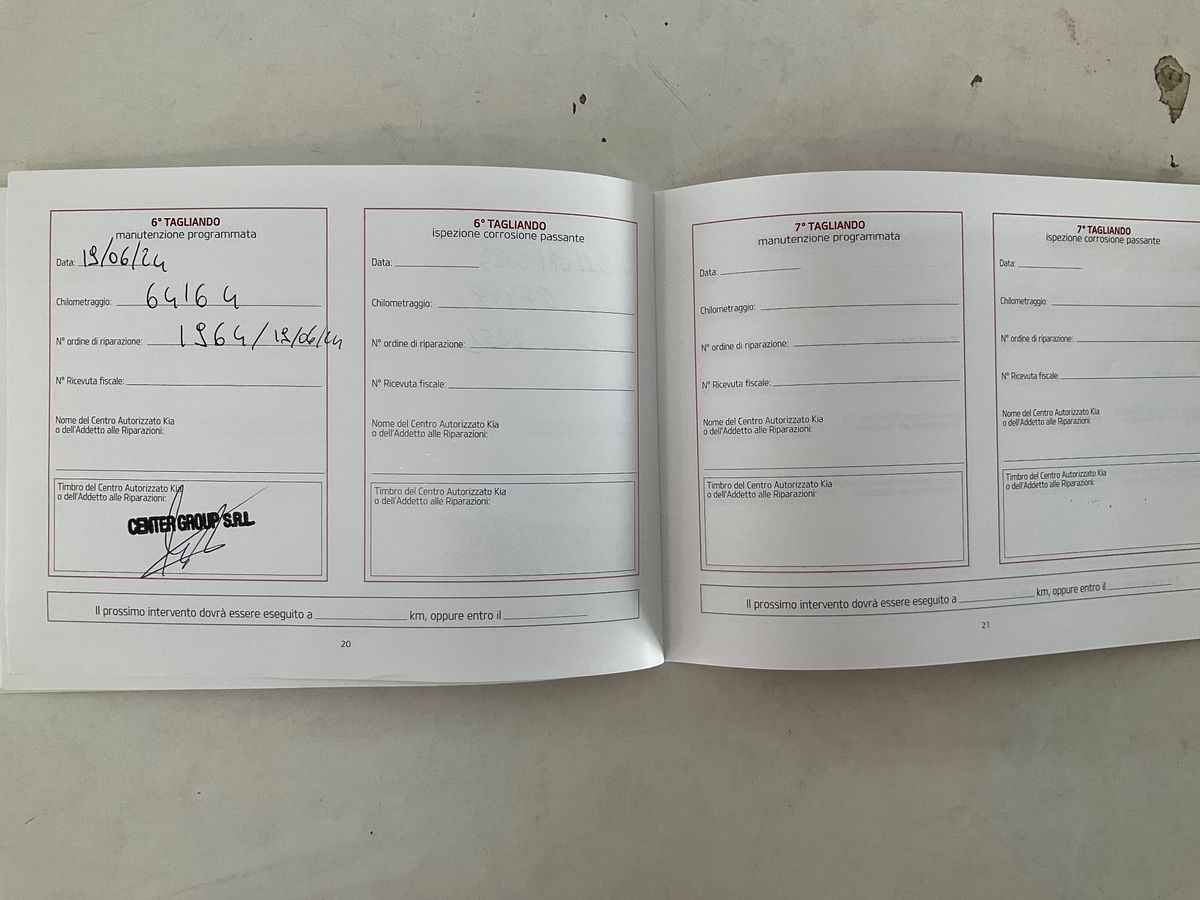 6° TAGLIANDO
manutenzione programmata
Data: 19/06/24
Chilometraggio: 64164
N° ordine di riparazione: 1964/19/06/24
N° Ricevuta fiscale:
Nome del Centro Autorizzato Kia
o dell'Addetto alle Riparazioni:
Timbro del Centro Autorizzato Kia
o dell'Addetto alle Riparazioni:
CENTER GROUP S.R.L.
6° TAGLIANDO
ispezione corrosione passante
Data:
Chilometraggio:
N° ordine di riparazione:
N° Ricevuta fiscale:
Nome del Centro Autorizzato Kia
o dell'Addetto alle Riparazioni:
Timbro del Centro Autorizzato Kia
o dell'Addetto alle Riparazioni:
Il prossimo intervento dovrà essere eseguito a km, oppure entro il
20
7° TAGLIANDO
manutenzione programmata
Data:
Chilometraggio:
N° ordine di riparazione:
N° Ricevuta fiscale:
Nome del Centro Autorizzato Kia
o dell'Addetto alle Riparazioni:
Timbro del Centro Autorizzato Kia
o dell'Addetto alle Riparazioni:
7° TAGLIANDO
ispezione corrosione passante
Data:
Chilometraggio:
N° ordine di riparazione:
N° Ricevuta fiscale:
Nome del Centro Autorizzato Kia
o dell'Addetto alle Riparazioni:
Timbro del Centro Autorizzato Kia
o dell'Addetto alle Riparazioni:
Il prossimo intervento dovrà essere eseguito a km, oppure entro il
21